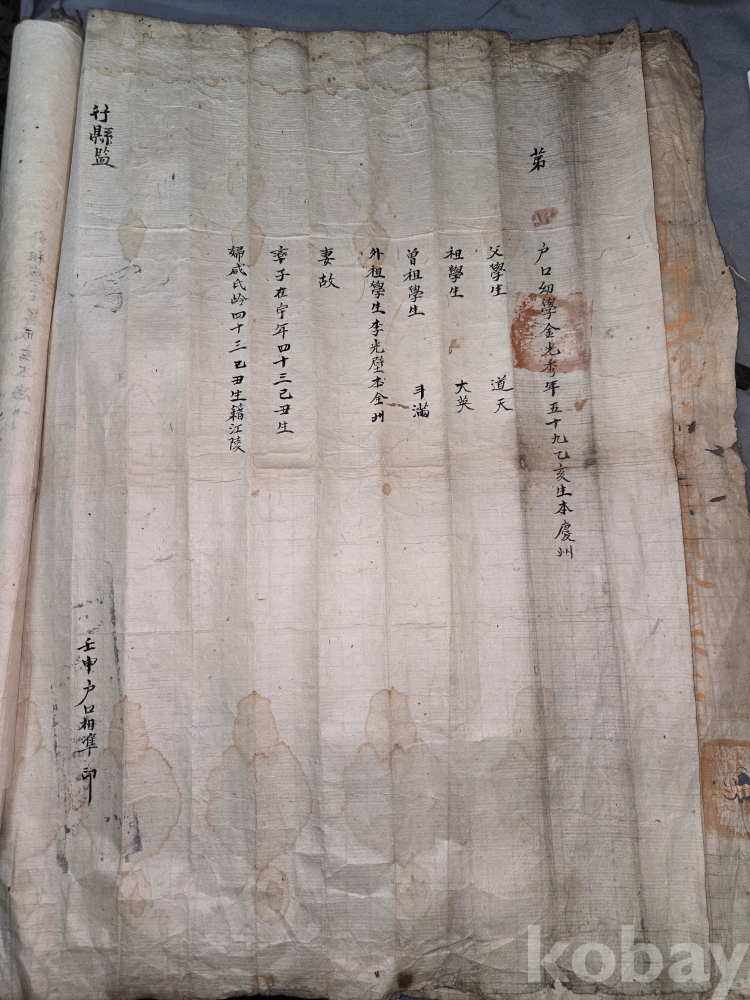 第
戶口幼學金光秀年五十九乙亥生本慶州
父學生 道天
祖學生 大英
曾祖學生 斗滿
外祖學生李光壁本全州
妻故
率子在宇年四十三己丑生
婦咸氏齡四十三己丑生籍江陵
行縣監
壬申戶口相準印
kobay